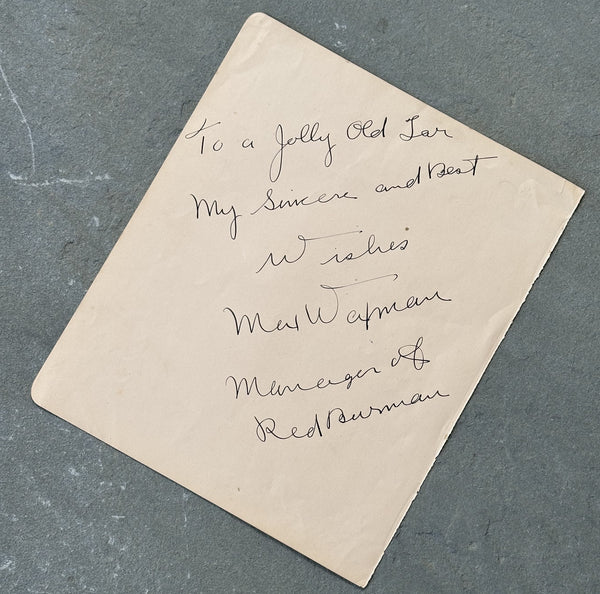 To a Jolly Old Tar
My Sincere and Best
Wishes
Max Waxman
Manager of
Red Burman